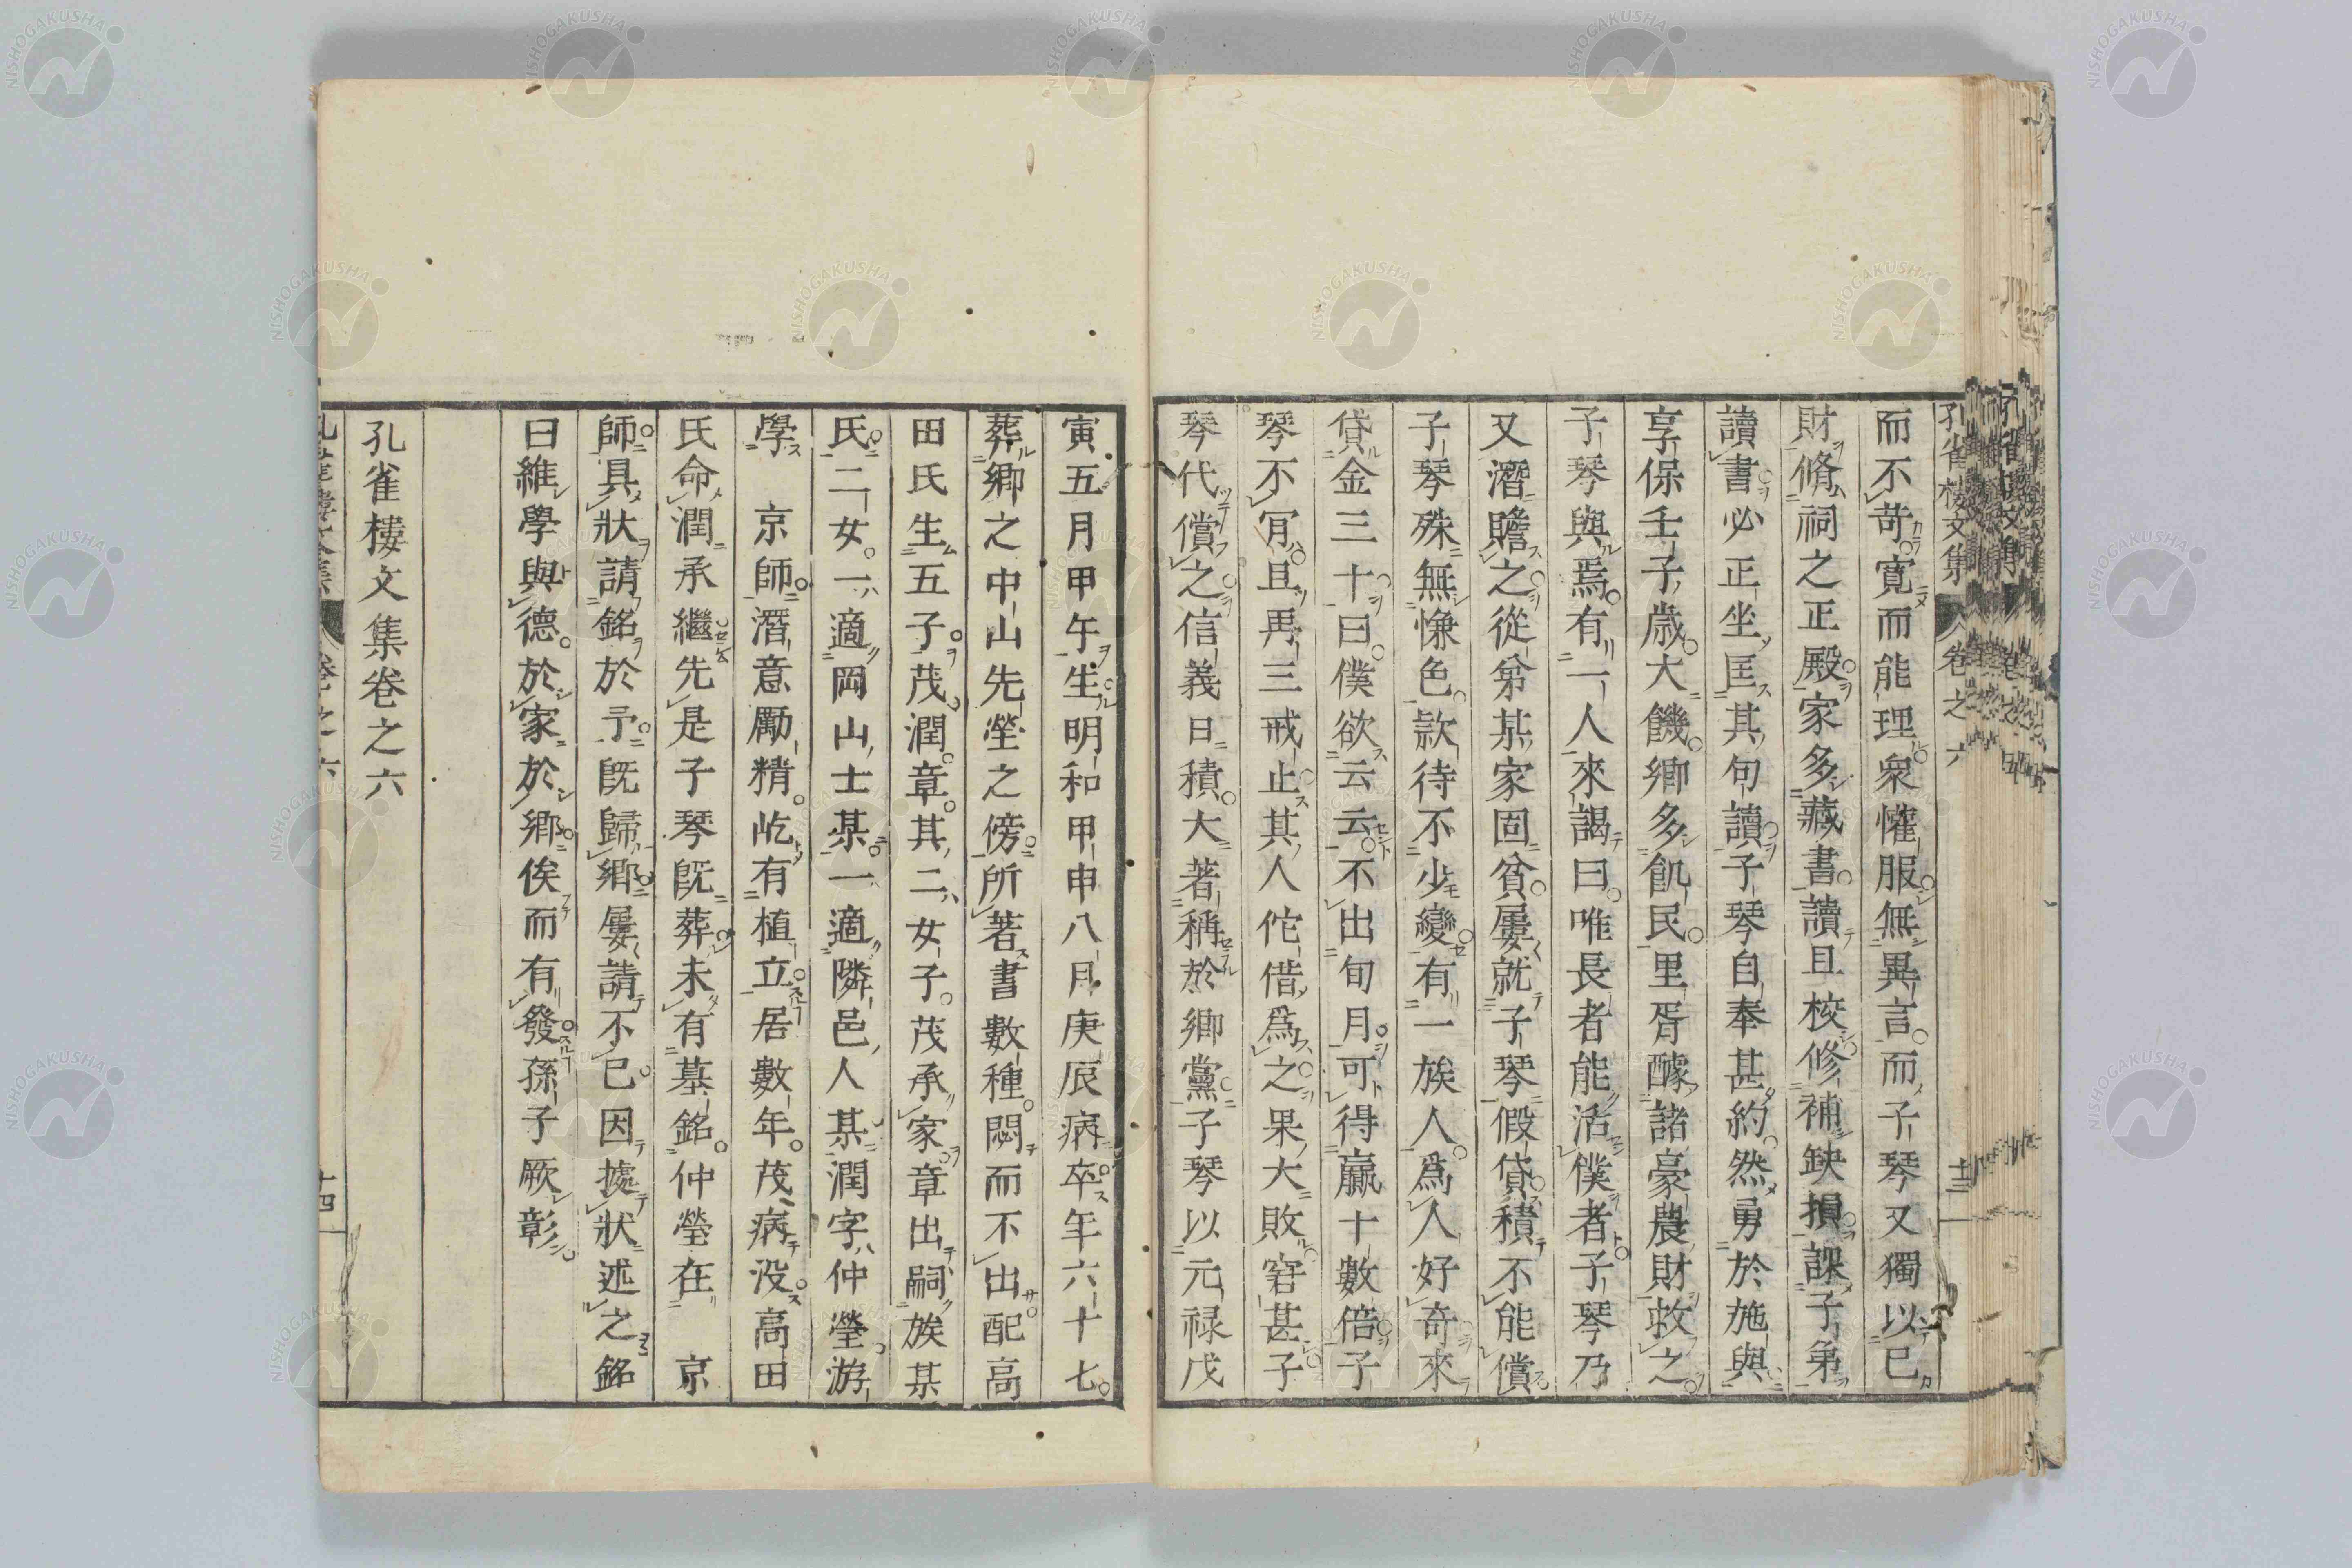 而不苛寛而能理衆懽服無異言而子琴又獨以己
財脩祠之正殿家多藏書讀且校修補缺損課子弟
讀書必正坐匡其句讀子琴自奉甚約然勇於施與
享保壬子歳大饑郷多飢民里胥醵諸豪農財救之
子琴與焉有一人來謁曰唯長者能活僕者子琴乃
又潛贍之從弟某家固貧屢就子琴假貸積不能償
子琴殊無慊色款待不少變有一族人爲人好奇來
貸金三十曰僕欲云云不出旬月可得贏十數倍子
琴不肎且再三戒止其人佗借爲之果大敗窘甚子
琴代償之信義日積大著稱於郷黨子琴以元禄戊
寅五月甲午生明和甲申八月庚辰病卒年六十七
葬郷之中山先塋之傍所著書數種悶而不出配高
田氏生五子茂潤章其二女子茂承家章出嗣族某
氏二女一適岡山士某一適隣邑人某潤字仲瑩游
學　京師潛意厲精屹有植立居數年茂病没高田
氏命潤承繼先是子琴既葬未有墓銘仲瑩在　京
師具狀請銘於予既歸郷屢請不已因據狀述之銘
曰維學與德於家於郷俟而有發孫子厥彰
孔雀樓文集卷之六
孔雀樓文集　卷之六　十三
孔雀樓文集　卷之六　十四
NISHOGAKUSHA